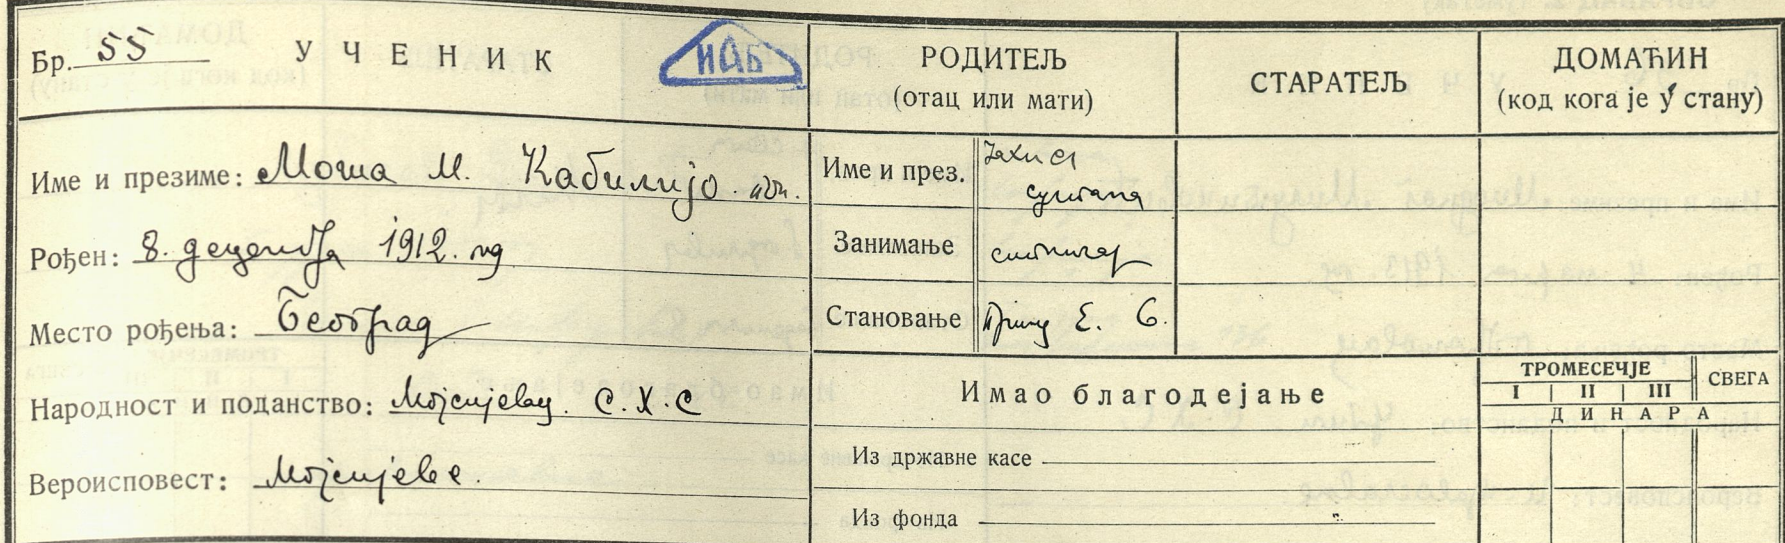 Бр. 55 УЧЕНИК
ИАБ
РОДИТЕЉ
(отац или мати)
СТАРАТЕЉ
ДОМАЋИН
(код кога је у стану)
Име и презиме: Моша М. Кабилијо
Рођен: 8. децембра 1912. год
Место рођења: Београд
Народност и поданство: Мојсијевац. С.Х.С
Вероисповест: Мојсијеве.
Име и през.
султана
Занимање
Становање Принц Е. 6.
Имао благодејање
ТРОМЕСЕЧЈЕ
СВЕГА
I II III
ДИНАРА
Из државне касе
Из фонда